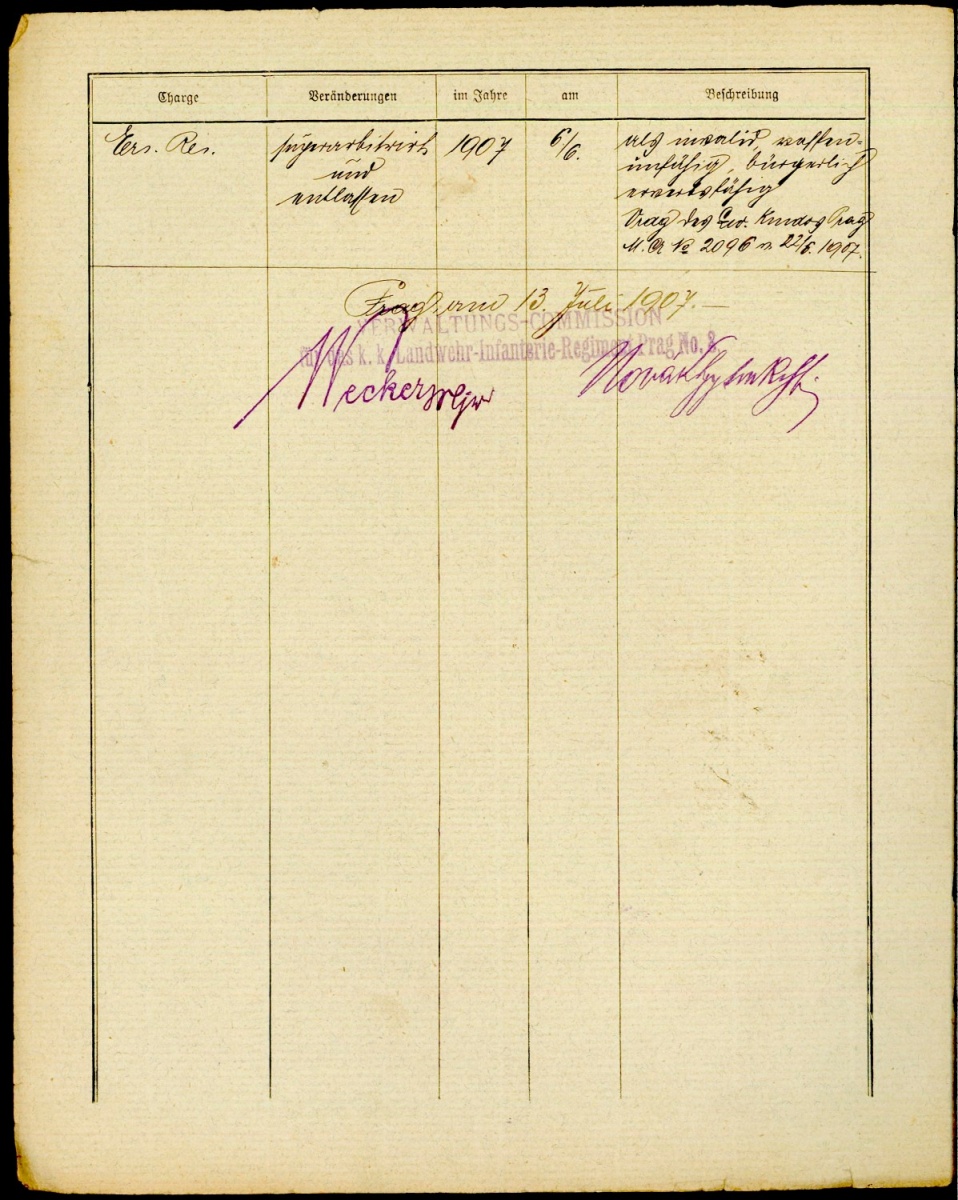 Charge Veränderungen im Jahre am Beschreibung
Ers. Res. superarbitrirt 1907 6/6. als invalid, waffen-
und unfähig, bürgerlich
entlassen erwerbsfähig
Prag des Kmdos Prag
M. A. No 2096 v. 22/6. 1907.
Prag, am 13. Juli 1907.
VERWALTUNGS-COMMISSION
für das k. k. Landwehr-Infanterie-Regiment Prag No. 8.
Wecker Mjr Novák